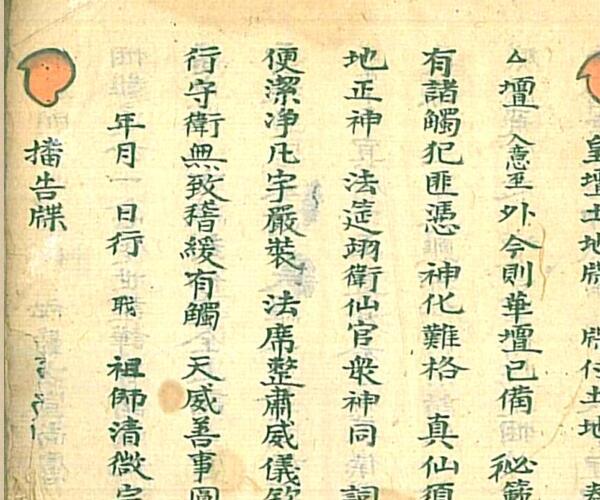 皇壇土地牒 牒仕土地
△壇入意至外今則華壇已備 秘籙
有諸觸犯匪憑 神化難格 真仙須
地正神 法筵翊衛仙官衆神同 詞
便潔净凡宇嚴裝 法席整肅威儀欽
行守衛無致稽緩有觸 天威善事圓
年月一日行 戝 祖師清微宗
播告牒